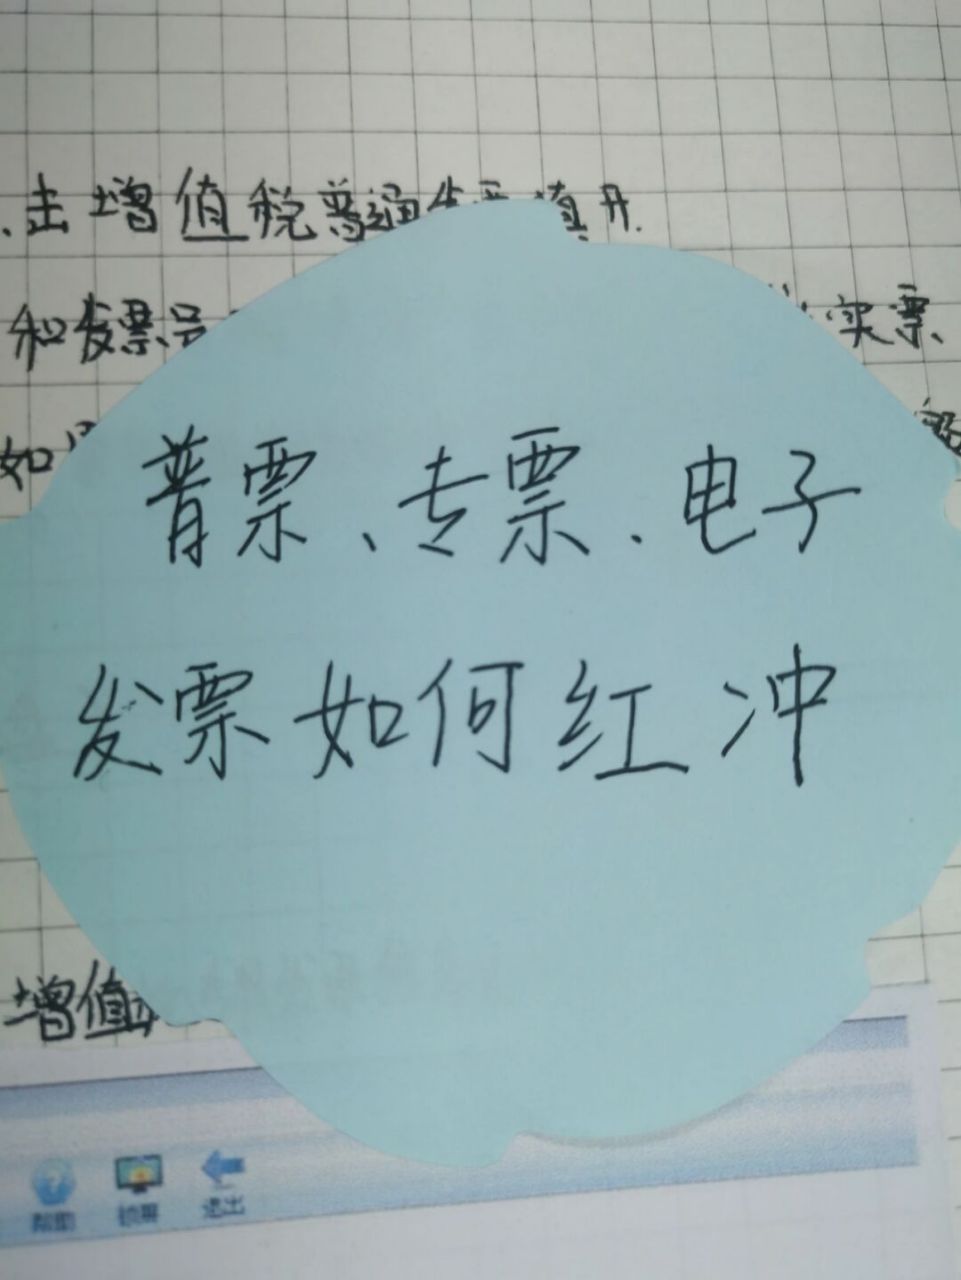 击增值税普通发票填开.
和发票号
实票、
如
普票、专票、电子
发票如何红冲
增值
帮助
退出